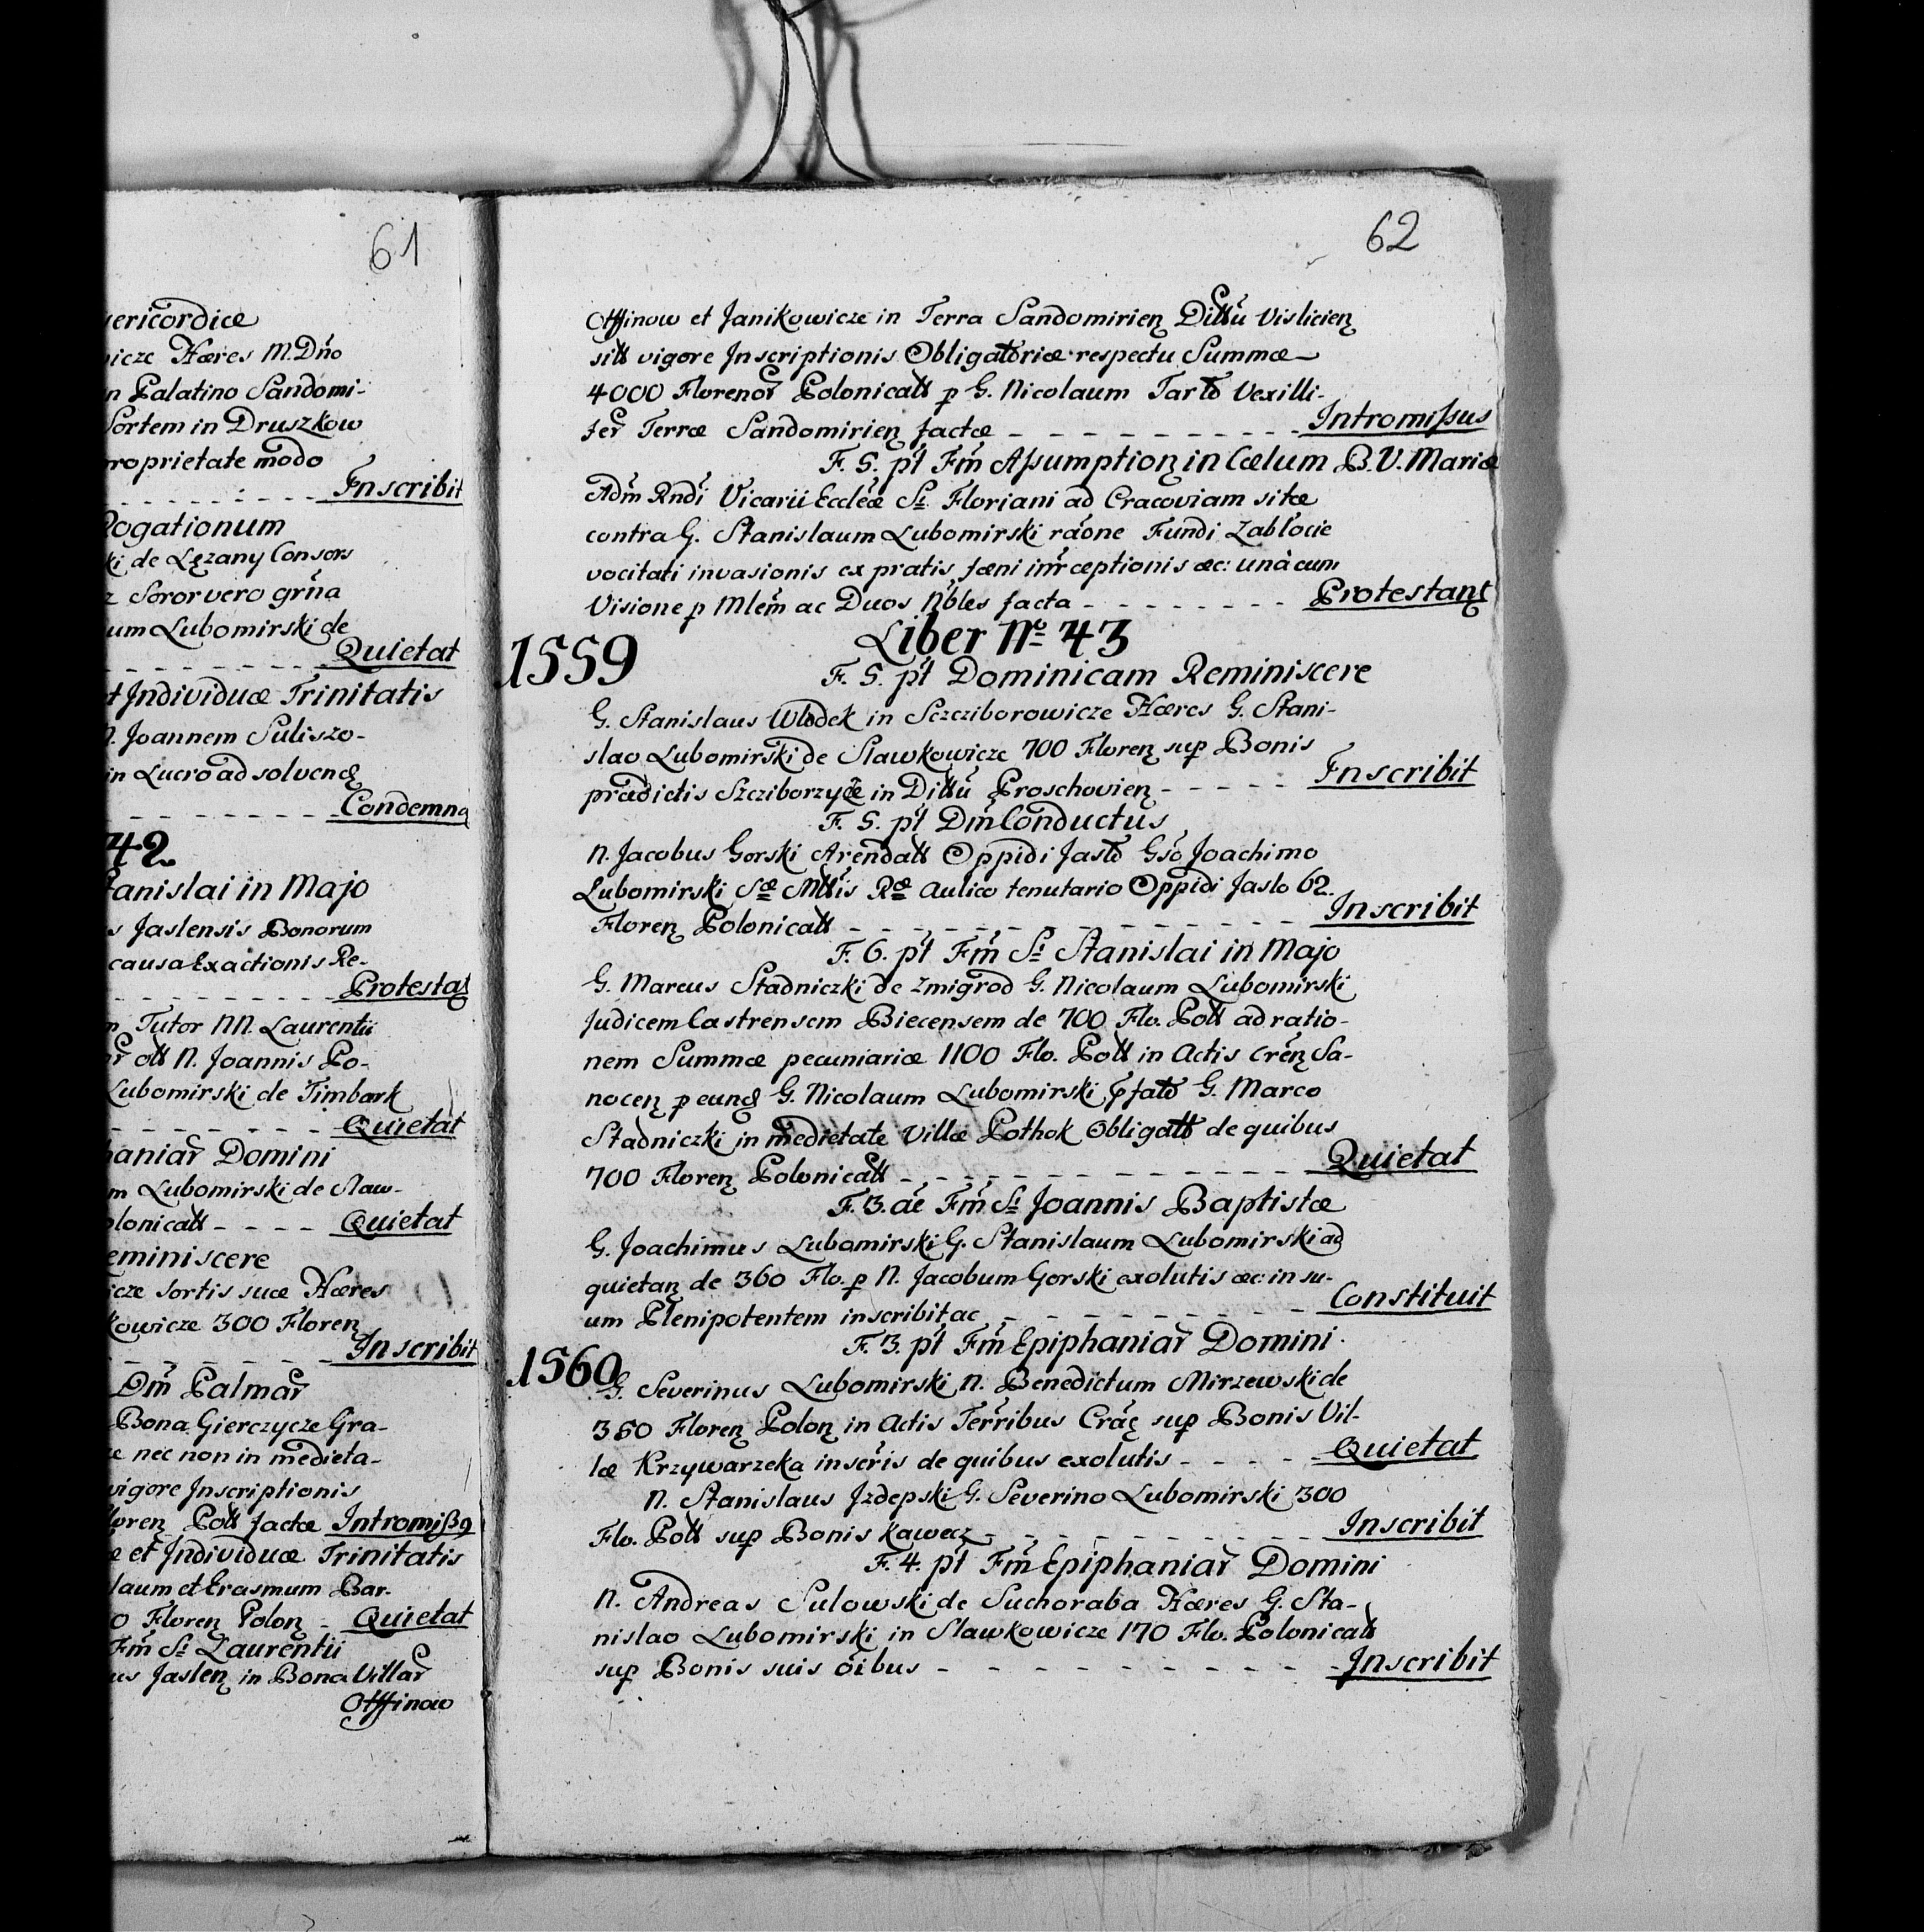 61
ericordiæ
icze Hæres M. Dn̄o
n Palatino Sandomi-
Sortem in Druszkow
roprietate modo
Inscribit
Rogationum
ki de Lęzany Consors
z Soror vero grn̄a
um Lubomirski de
Quietat
et Individuæ Trinitatis
N. Joannem Suliszo-
in Lucro ad solvend
Condemna
42
Stanislai in Majo
s Jaslensis Bonorum
causa Exactionis Re-
Protestat
m Tutor NN. Laurentii
olt N. Joannis Po-
Lubomirski de Timbark
Quietat
haniar̄ Domini
m Lubomirski de Slaw-
olonicall - - - - Quietat
eminiscere
icze sortis suæ Hæres
kowicze 300 Floren
Inscribit
Dm̄ Palmar̄
Bona Gierczycze Gra-
e nec non in medieta-
vigore Inscriptionis
loren Poll factæ Intromiß9
æ et Individuæ Trinitatis
laum et Erasmum Bar-
0 Floren Polon - Quietat
Fm̄ St Laurentii
us Jaslen in Bona Villar̄
Offinow
62
Offinow et Janikowicze in Terra Sandomirien Dittū Vislicien
sitt vigore Inscriptionis Obligatoriæ respectu Summæ
4000 Florenor̄ Polonicall p G. Nicolaum Tarło Vexilli-
fer̄ Terræ Sandomirien factæ - - - - - - - - - - Intromißus
F. 5. pt̄ Fm̄ Aßumption in Cælum B. V. Mariæ
Adm̄ Rndī Vicarii Eccleæ St Floriani ad Cracoviam sitæ
contra G. Stanislaum Lubomirski rāone Fundi Zabłocie
vocitati invasionis ex pratis fæni inr̄ceptionis æc: unà cum
Visione p Mlem̄ ac Duos Nbles facta - - - - - - - - Protestant
Liber No 43
1559
F. 5. pt̄ Dominicam Reminiscere
G. Stanislaus Włodek in Sczcziborowicze Hæres G. Stani-
slao Lubomirski de Slawkowicze 700 Floren sup Bonis
prædictis Szcziborzycze in Dittū Proschovien - - - - - Inscribit
F. 5. pt̄ Dm̄ Conductus
N. Jacobus Gorski Arendall Oppidi Jasło Gsō Joachimo
Lubomirski Sæ Mttis Ræ Aulico tenutario Oppidi Jaslo 62.
Floren Polonicall - - - - - - - - - - - - - - Inscribit
F. 6. pt̄ Fm̄ St Stanislai in Majo
G. Marcus Stadniczki de Zmigrod G. Nicolaum Lubomirski
Judicem Castrensem Biecensem de 700 Flo. Poll ad ratio-
nem Summæ pecuniariæ 1100 Flo. Poll in Actis Cren̄ Sa-
nocen p eund G. Nicolaum Lubomirski pfato G. Marco
Stadniczki in medietate Villæ Pothok Obligatt de quibus
700 Floren Polonicall - - - - - - - - - - - - - Quietat
F. 3. āe Fm̄ St Joannis Baptistæ
G. Joachimus Lubomirski G. Stanislaum Lubomirski ad
quietan de 360 Flo. p N. Jacobum Gorski exolutis æc: in su-
um Plenipotentem inscribit ac - - - - - - - - - Constituit
F. 3. pt̄ Fm̄ Epiphaniar̄ Domini.
1560
G. Severinus Lubomirski N. Benedictum Mirzewski de
350 Floren Polon in Actis Terr̄ibus Crac sup Bonis Vil-
læ Krzywarzeka inscr̄is de quibus exolutis - - - - - Quietat
N. Stanislaus Jzdepski G. Severino Lubomirski 300
Flo. Poll sup Bonis Kawecz - - - - - - - - - - Inscribit
F. 4. pt̄ Fm̄ Epiphaniar̄ Domini
N. Andreas Sulowski de Suchoraba Hæres G. Sta-
nislao Lubomirski in Slawkowicze 170 Flo. Polonicall
sup Bonis suis ōibus - - - - - - - - - - - Inscribit